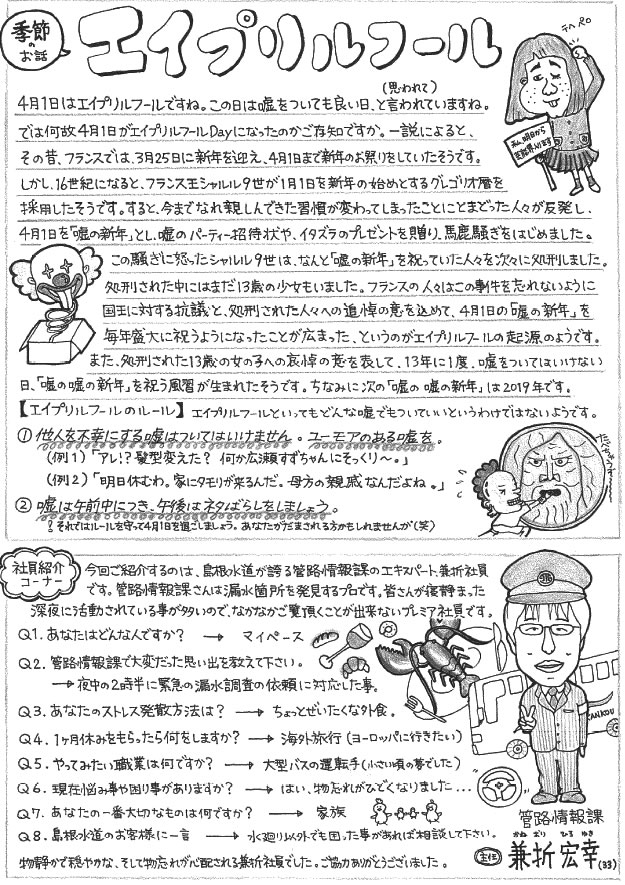 季節のお話
エイプリルフール
テヘペロ
(思われて)
4月1日はエイプリルフールですね。この日は嘘をついても良い日、と言われていますね。
では何故4月1日がエイプリルフールDayになったのかご存知ですか。一説によると、
その昔、フランスでは、3月25日に新年を迎え、4月1日まで新年のお祭りをしていたそうです。
しかし、16世紀になると、フランス王シャルル9世が1月1日を新年の始めとするグレゴリオ暦を
採用したそうです。すると、今までなれ親しんできた習慣が変わってしまったことにとまどった人々が反発し、
4月1日を「嘘の新年」とし、嘘のパーティー招待状や、イタズラのプレゼントを贈り、馬鹿騒ぎをはじめました。
この騒ぎに怒ったシャルル9世は、なんと「嘘の新年」を祝っていた人々を次々に処刑しました。
処刑された中にはまだ13歳の少女もいました。フランスの人々はこの事件を忘れないように
国王に対する抗議と、処刑された人々への追悼の意を込めて、4月1日の「嘘の新年」を
毎年盛大に祝うようになったことが広まった、というのがエイプリルフールの起源のようです。
また、処刑された13歳の女の子への哀悼の意を表して、13年に1度、嘘をついてはいけない
日、「嘘の嘘の新年」を祝う風習が生まれたそうです。ちなみに次の「嘘の嘘の新年」は2019年です。
【エイプリルフールのルール】 エイプリルフールといってもどんな嘘でもついていいというわけではないようです。
① 他人を不幸にする嘘はついてはいけません。ユーモアのある嘘を。
(例1)「アレ!?髪型変えた? 何か広瀬すずちゃんにそっくり〜。」
(例2)「明日休むわ。家にタモリが来るんだ。母方の親戚なんだよね。」
② 嘘は午前中につき、午後はネタばらしをしましょう。
それではルールを守って4月1日を過ごしましょう。あなたがだまされる方かもしれませんが(笑)
社員紹介コーナー
今回ご紹介するのは、島根水道が誇る管路情報課のエキスパート、兼折社員
です。管路情報課さんは漏水箇所を発見するプロです。皆さんが寝静まった
深夜に活動されている事が多いので、なかなかご覧頂くことが出来ないプレミア社員です。
Q1. あなたはどんな人ですか? → マイペース
Q2. 管路情報課で大変だった思い出を教えて下さい。
→ 夜中の2時半に緊急の漏水調査の依頼に対応した事。
Q3. あなたのストレス発散方法は? → ちょっとぜいたくな外食。
Q4. 1ヶ月休みをもらったら何をしますか? → 海外旅行(ヨーロッパに行きたい)
Q5. やってみたい職業は何ですか? → 大型バスの運転手(小さい頃の夢でした)
Q6. 現在悩み事や困り事がありますか? → はい、物忘れがひどくなりました...
Q7. あなたの一番大切なものは何ですか? → 家族
Q8. 島根水道のお客様に一言 → 水廻り以外でも困った事があれば相談して下さい。
物静かで穏やかな、そして物忘れが心配される兼折社員でした。ご協力ありがとうございました。
KANKOU
管路情報課
かね おり ひろ ゆき
主任 兼折 宏幸(33)